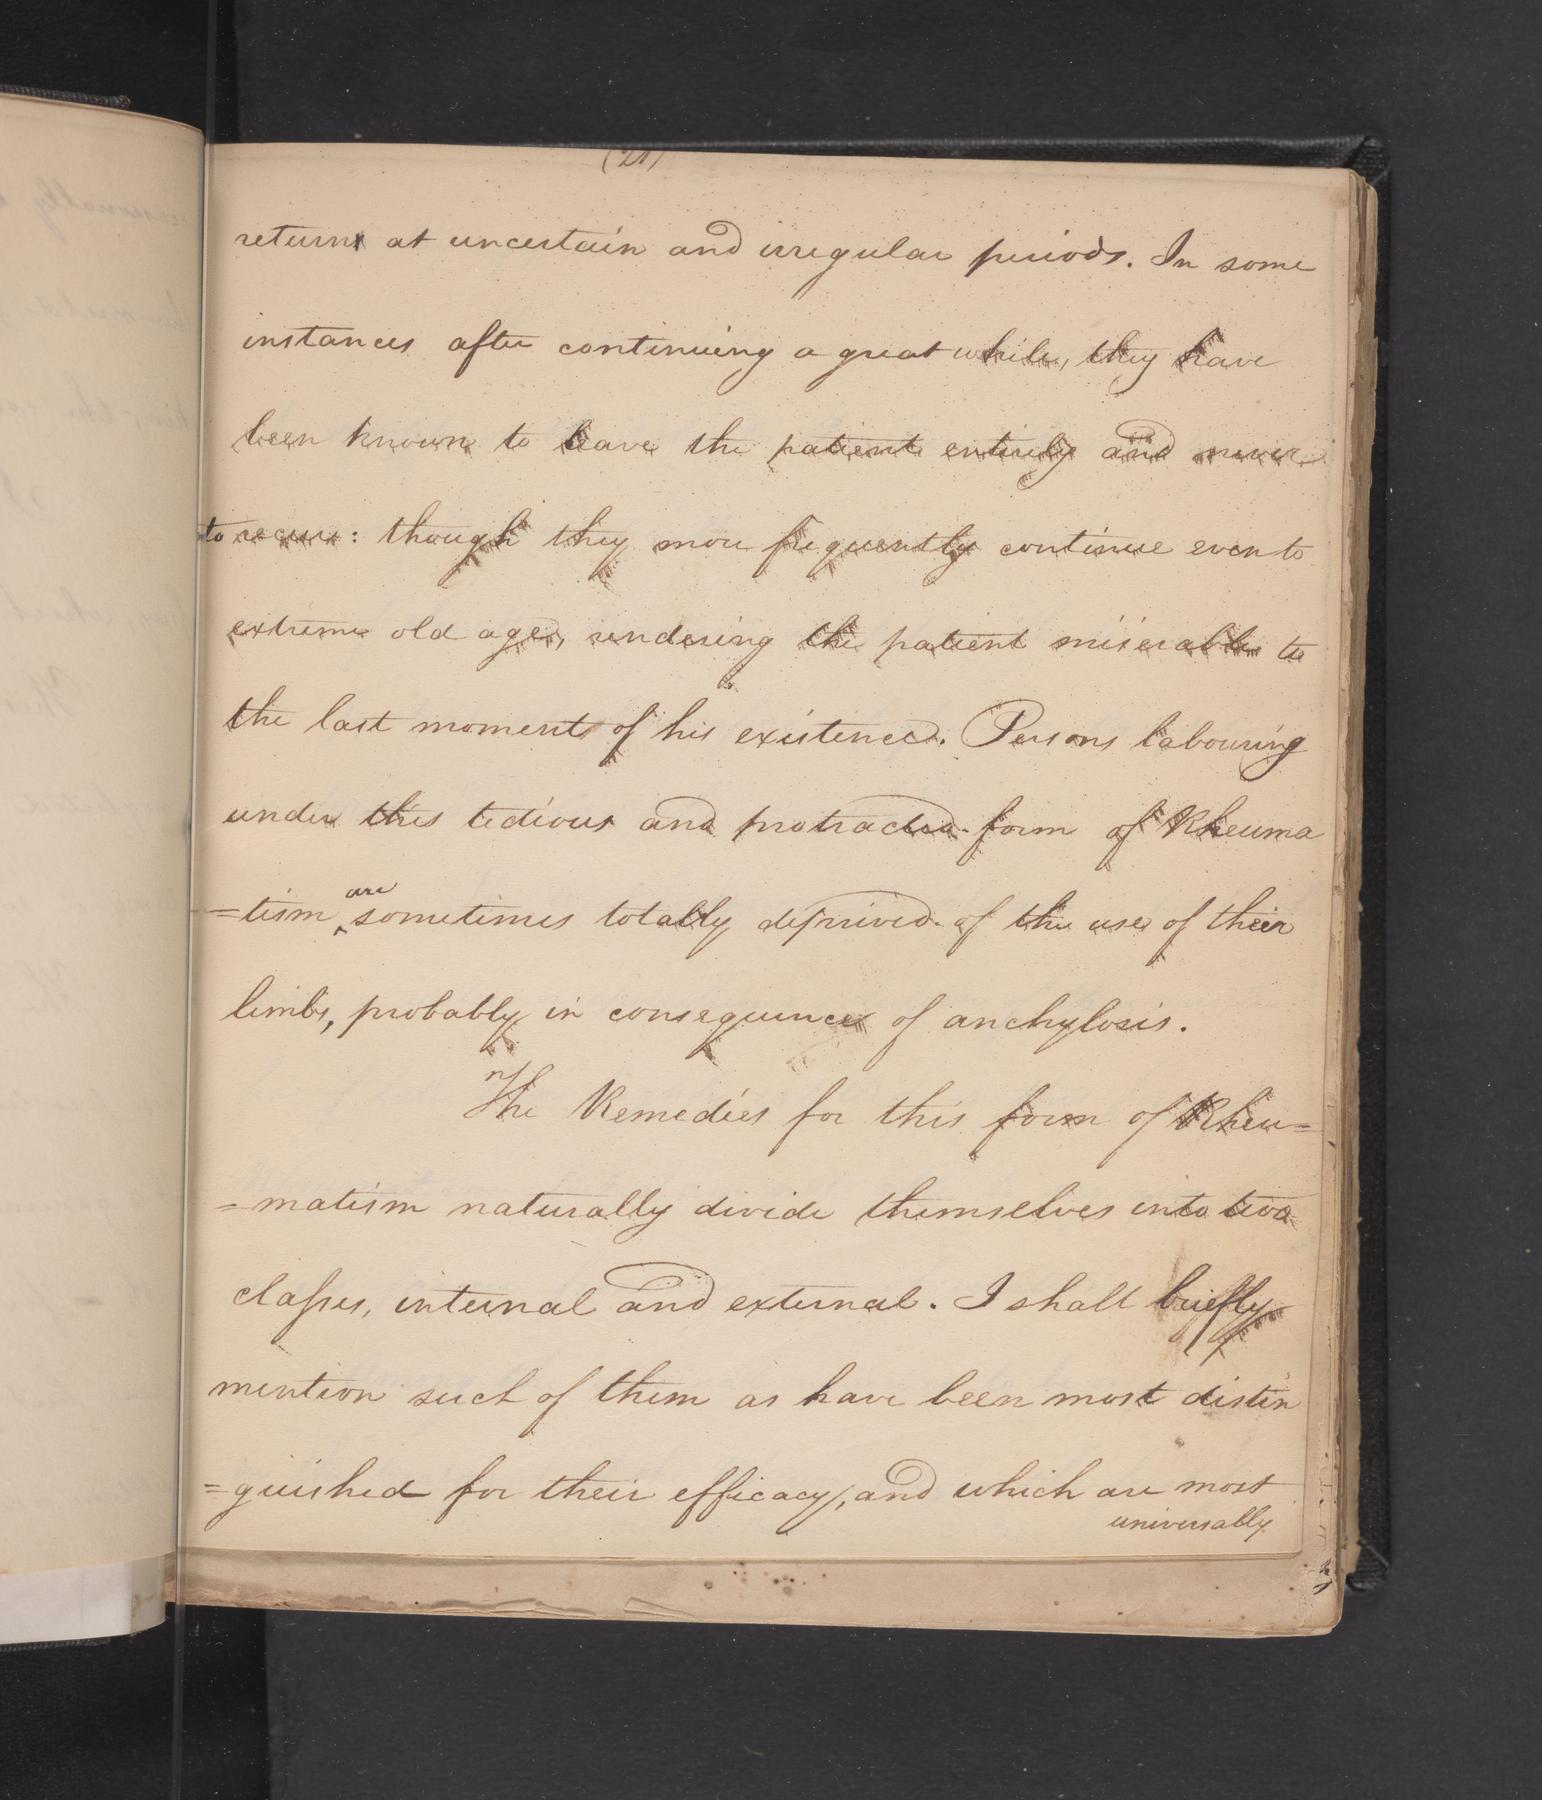 (21)
return at uncertain and irregular periods. In some
instances after continuing a great while, they have
been known to leave the patient entirely and never
to recur: though they more frequently continue even to
extreme old age, rendering the patient miserable to
the last moments of his existence. Persons labouring
under this tedious and protracted form of Rheuma
=tism are sometimes totally deprived of the use of their
limbs, probably in consequence of anchylosis.
The Remedies for this form of Rheu=
=matism naturally divide themselves into two
classes, internal and external. I shall briefly
mention such of them as have been most distin
=guished for their efficacy, and which are most
universally